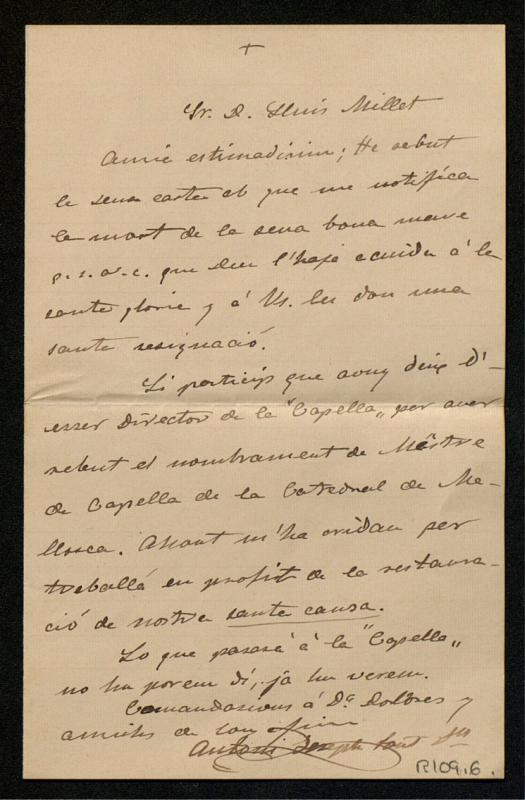 +
Sr. D. Lluis Millet
Amic estimadissim; He rebut
la seua carta ab que me notifica
la mort de la seua bona mare
que Deu l'haja acuida á la
santa gloria y á Vs. los don una
santa resignació.
Li particip que avuy deix d'
esser Director de la "Capella" per aver
rebut el nombrament de Mestre
de Capella de la Catedral de Ma-
llorca. Allout m'ha cridau per
treballá en profit de la restaura-
ció de nostra santa causa.
Lo que pasará á la "Capella"
no hu porem dí, ja hu verem.
Comandacions á Dª Dolores y
amichs de son
Antoni Joseph Pont
R109.6.